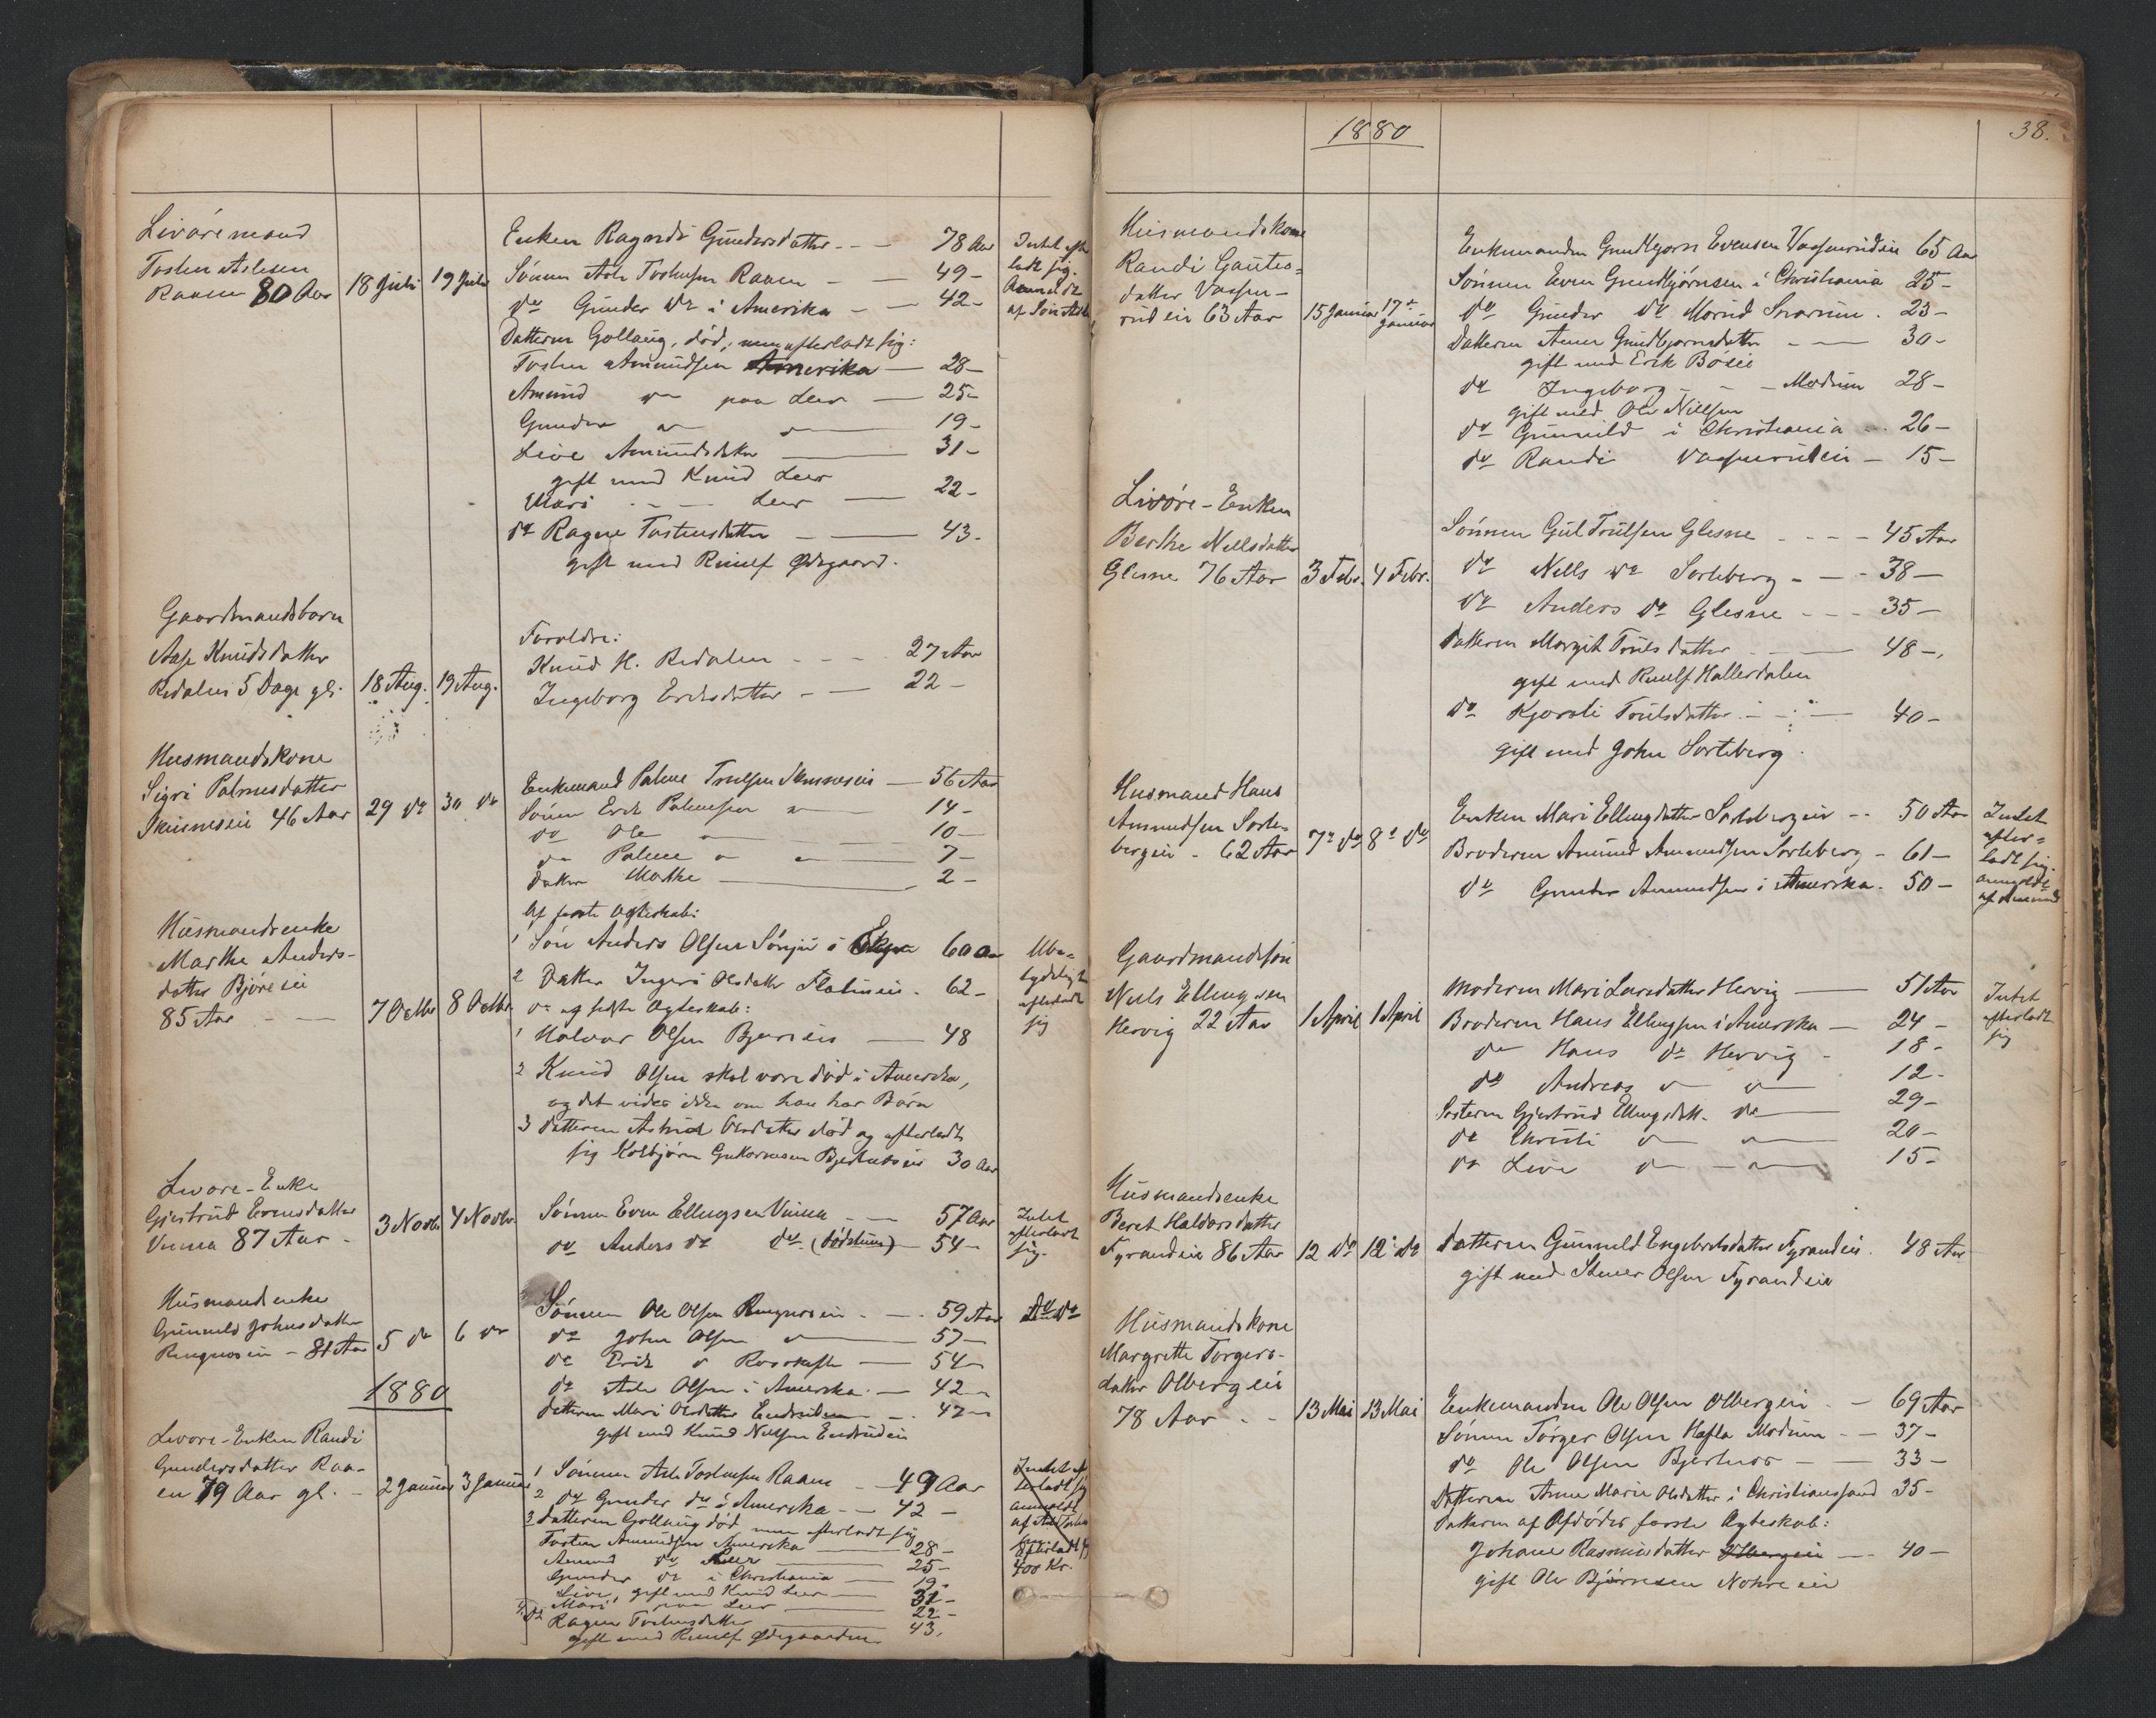 Livøremand
Tosten Aslesen
Raaen 80 Aar 18 Juli 19 Juli
Enken Ragndi Gundersdatter 78 Aar
Sønnen Asle Tostensen Raaen 49 -
do Gunder do i Amerika 42 -
Datteren Gollaug, død, men efterladt sig:
Tosten Amundsen Amerika 28 -
Amund do paa Leer 25 -
Gunder 19 -
Live Amundsdatter 31 -
gift med Knud Leer
Mari Leer 22 -
do Ragne Tostensdatter 43 -
gift med Ødegaard.
Intet efter
ladt sig.
Anmeldt
af Søn Asle
Gaardmandsbarn
Aase Knudsdatter
Redalen 5 Dage gl. 18 Aug. 19 Aug.
Forældre:
Knud H. Redalen 27 Aar
Ingeborg Eriksdatter 22 -
Husmandskone
Sigri Palmesdatter
46 Aar 29 do 30 do
Enkemand Palme Truelsen 56 Aar
Sønnen Erik Palmesen 14 -
do Ole 10 -
do Palme 7 -
Datter Marthe 2 -
Husmandsenke
Marthe Anders-
datter Bjøreeie
85 Aar 7 Octbr 8 Octbr
Af første Ægteskab:
1 Søn Anders Olsen i 60 Aar
2 Datter Ingeri Olsdatter 62 -
do af sidste Ægteskab:
1 Halvor Olsen 48
2 Knud Olsen skal være død i Amerika,
og det vides ikke om han har Børn
3 Datteren Astrid Olsdatter død og efterladt
sig Kolbjørn 30 Aar
Ube-
tydeligt
efterladt
sig
Livøre-Enke
Gjertrud Evensdatter
Vinna 87 Aar 3 Novbr. 4 Novbr.
Sønnen Even Ellingsen Vinna 57 Aar
do Anders do do 54 -
Intet
efterladt
sig.
Husmandsenke
Gunnild Johnsdatter
81 Aar 5 do 6 do
Sønnen Ole Olsen 59 Aar
do John Olsen 57 -
do Erik 54 -
do Asle Olsen i Amerika 42 -
Datteren Mari Olsdatter 42 -
gift med Knud Nilsen
1880
Livøre-Enken Randi
Gundersdatter Raa-
en 79 Aar gl. 2 Januar 3 Januar
1 Sønnen Asle Tostensen Raaen 49 Aar
2 do Gunder do i Amerika 42 -
3 Datteren Gollaug død men efterladt sig
Tosten Amundsen Amerika 28 -
Amund do Leer 25 -
Gunder do i Christiania 19 -
Live, gift med Knud Leer 31 -
Mari, paa Leer 22 -
Ragne Tostensdatter 43.
gift med Ødegaarden
400 Kr.
1880
38.
Husmandskone
Randi Gauteo-
datter
63 Aar 15 Januar 17de Januar
Enkemanden Gundbjørn Evensen 65 Aar
Sønnen Even Gundbjørnsen i Christiania 25 -
do Gunder do Snarum 23 -
Datteren Anne Gundbjørnsdatter 30 -
gift med Erik Bøeie
do Ingeborg Modum 28 -
gift med Ole Nilsen
do Gunnild i Christiania 26 -
do Randi 15 -
Livøre-Enken
Berthe Nellsdatter
Glesne 76 Aar 3 Febr. 4 Febr.
Sønnen Gul Trulsen Glesne 45 Aar
do Nells do Sorteberg 38 -
do Anders do Glesne 35 -
Datteren Margit Trulsdatter 48 -
gift med Hallerdalen
do Kjersti Trulsdatter 40 -
gift med John Sorteberg.
Husmand Hans
Amundsen Sorte-
bergeie 62 Aar 7de do 8de do
Enken Mari Ellingsdatter Sortebergeie 50 Aar
Broderen Amund Amundsen Sorteberg 61 -
do Gunder Amundsen i Amerika 50 -
Intet
efter-
ladt sig.
anmeldt
af Amund
Gaardmandssøn
Niels Ellingsen
Hervig 22 Aar 1 April 1 April
Moderen Mari Larsdatter Hervig 51 Aar
Broderen Hans Ellingsen i Amerika 24 -
do Hans do Hervig 18 -
do Andreas 12 -
Søsteren Gjertrud Ellingsdatt. do 29 -
do Christi 20 -
do Live 15 -
Intet
efterladt
sig
Husmandsenke
Beret Haldorsdatter
Fyrandeie 86 Aar 12 do 12 do
Datteren Gunnild Engebretsdatter Fyrandeie 48 Aar
gift med Stener Olsen Fyrandeie
Husmandskone
Margrethe Torgers-
datter Olbergeie
78 Aar 13 Mai 13 Mai
Enkemanden Ole Olsen Olbergeie 69 Aar
Sønnen Torger Olsen Hafla Modum 37 -
do Ole Olsen 33 -
Datteren Anne Marie Olsdatter i Christianssand 35 -
Datteren af Afdødes første Ægteskab:
Johane Rasmusdatter Olbergeie 40 -
gift Ole Bjørnesen Nohre eie